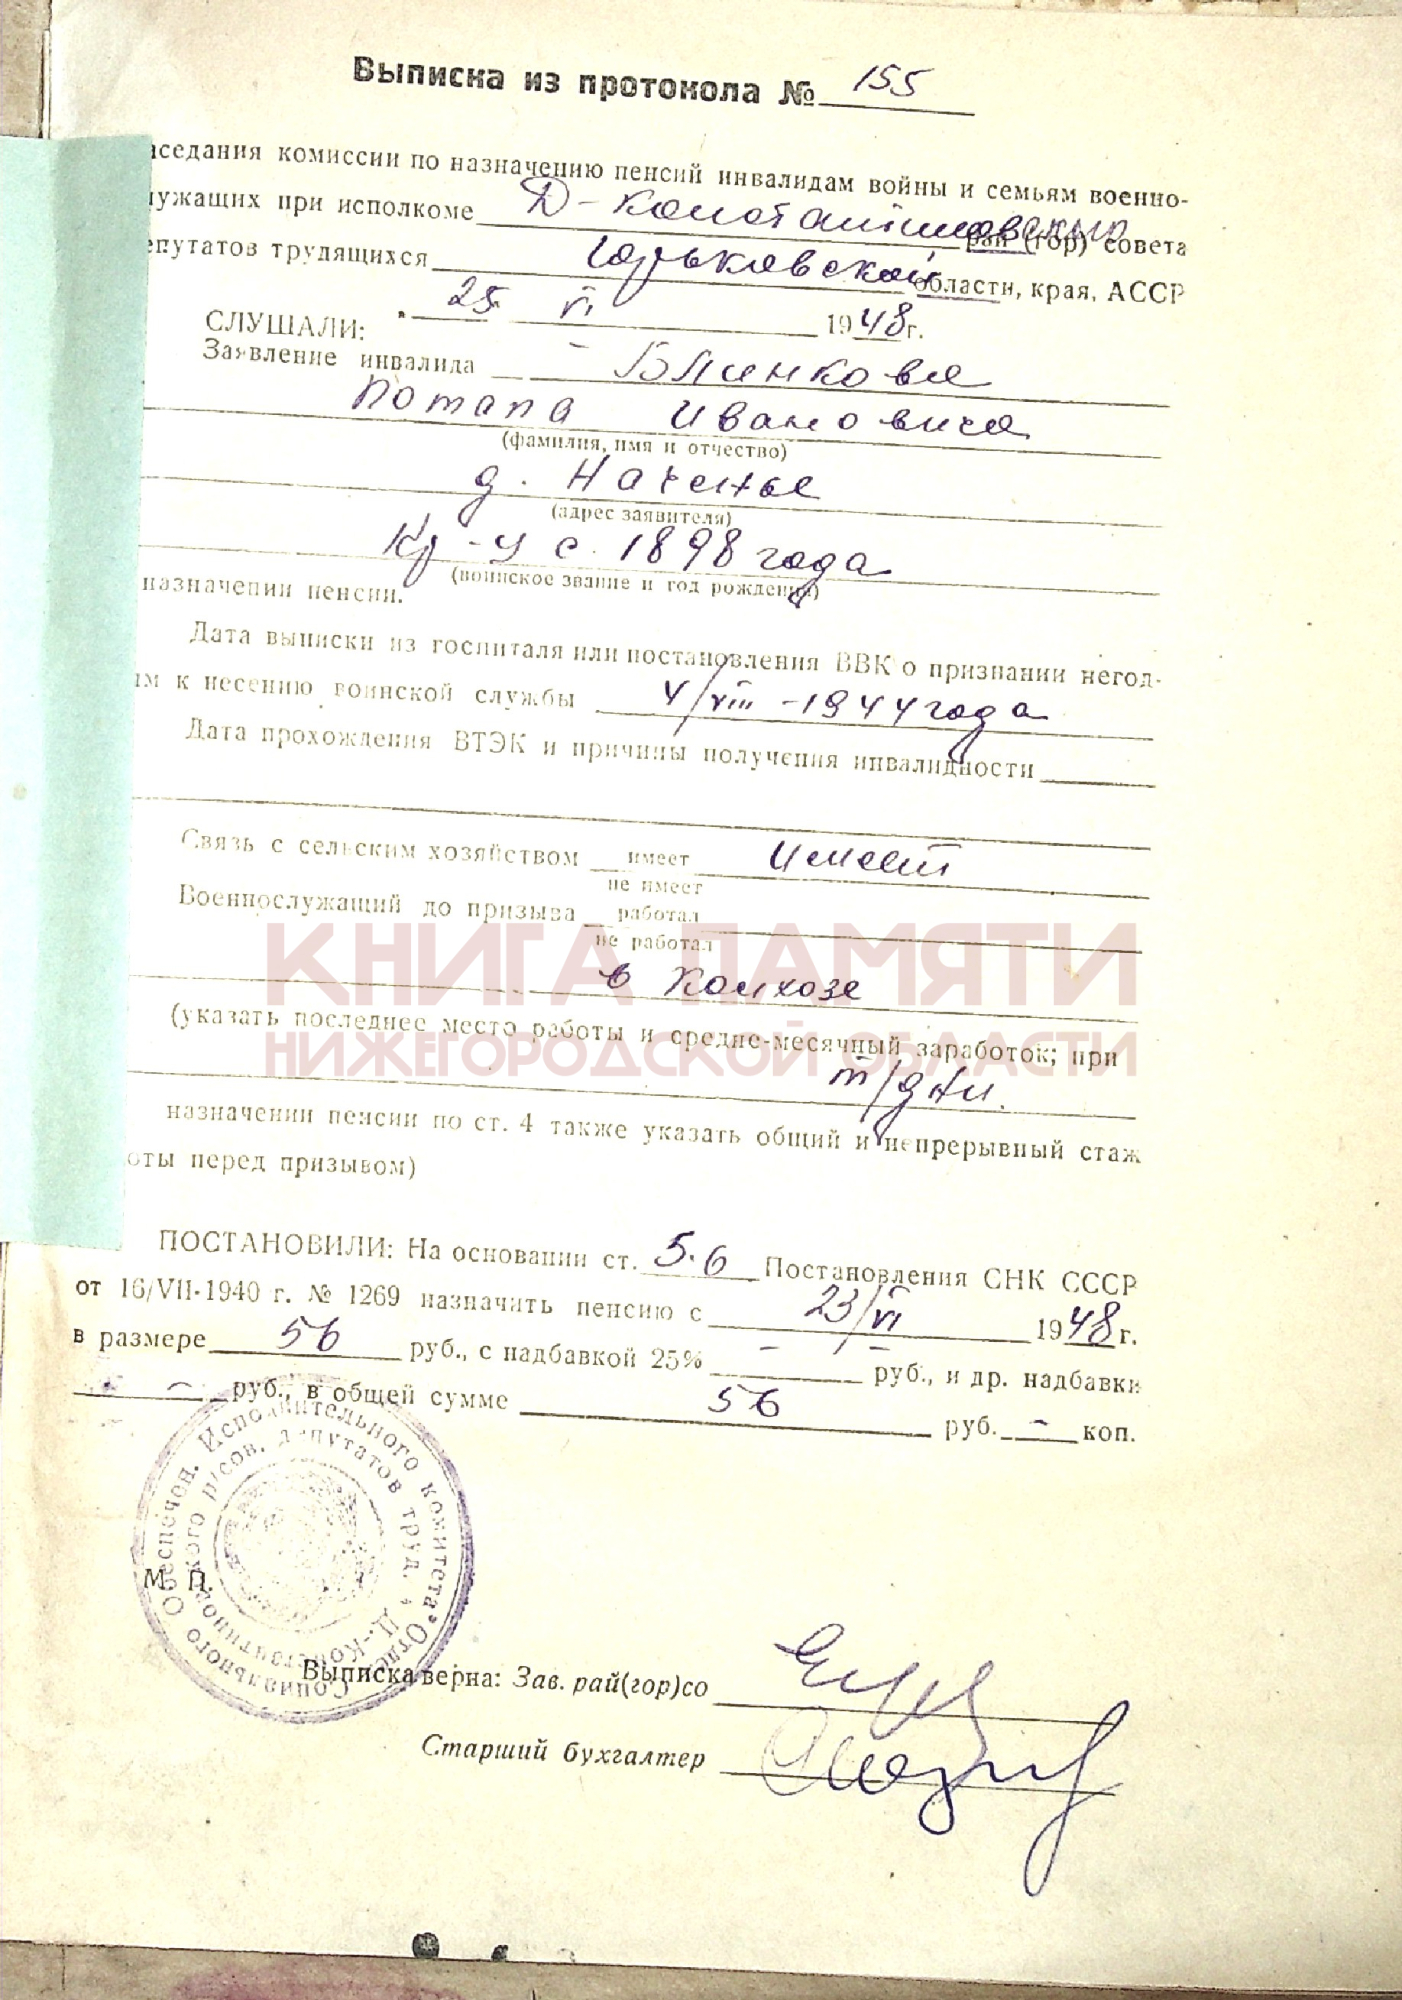 Выписка из протокола № 155
аседания комиссии по назначению пенсий инвалидам войны и семьям военно-
лужащих при исполкоме Д-Константиновского рай (гор) совета
епутатов трудящихся Горьковской области, края, АССР
" 25 " VI 1948 г.
СЛУШАЛИ:
Заявление инвалида Блинкова
Потапа Ивановича
(фамилия, имя и отчество)
д. Наченье
(адрес заявителя)
Кр-ц с 1898 года
(воинское звание и год рождения)
назначении пенсии.
Дата выписки из госпиталя или постановления ВВК о признании негод-
ым к несению воинской службы 4/VIII-1944 года
Дата прохождения ВТЭК и причины получения инвалидности
Связь с сельским хозяйством имеет имеет
не имеет
Военнослужащий до призыва работал
не работал
КНИГА ПАМЯТИ
в колхозе
(указать последнее место работы и средне-месячный заработок; при
НИЖЕГОРОДСКОЙ ОБЛАСТИ
т/дни.
назначении пенсии по ст. 4 также указать общий и непрерывный стаж
оты перед призывом)
ПОСТАНОВИЛИ: На основании ст. 5.6 Постановления СНК СССР
от 16/VII-1940 г. № 1269 назначить пенсию с 23/VI 1948 г.
в размере 56 руб., с надбавкой 25% — — руб., и др. надбавки
— руб., в общей сумме 56 руб. — коп.
Социального Обеспечен. Исполнительного комитета * Отдел
Д.-Константиновского р/сов. депутатов труд. *
М. П.
Выписка верна: Зав. рай(гор)со
Старший бухгалтер